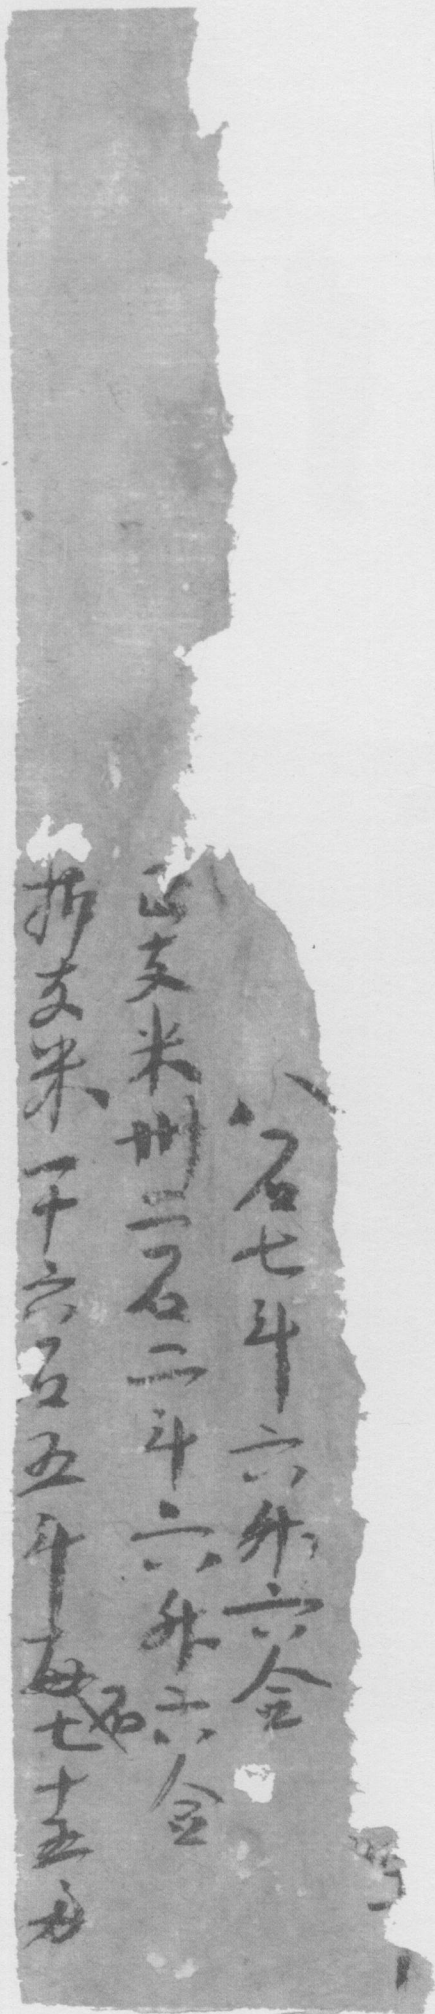 八石七斗六升六合
正支米卌二石二斗六升六合
折支米一十六石五斗每石七十五勇